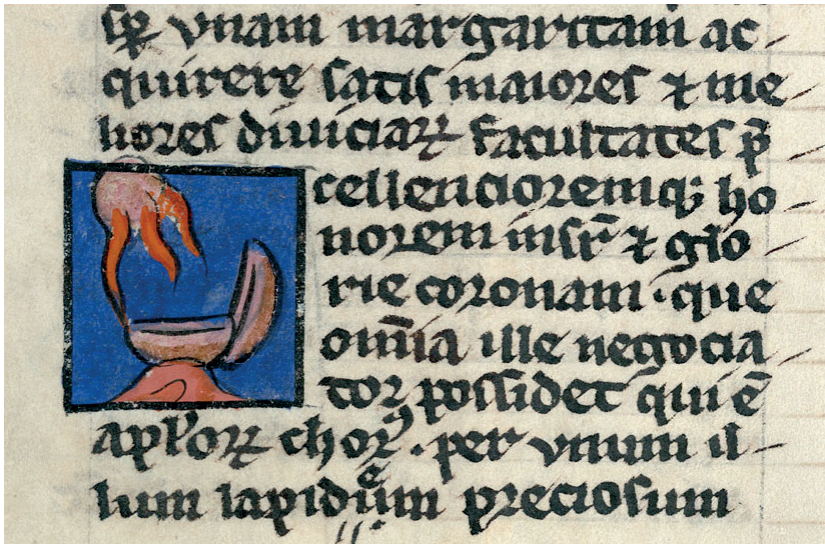 sꝑ vnam margaritam ac-
quirere satis maiores ⁊ me-
liores diuiciaꝝ facultates p̄-
cellencioremq; ho-
norem insr̄ ⁊ glo-
rie coronam · que
om̄ia ille negocia-
tor possidet qui ē
apl'oꝝ chorꝰ · per vnum il-
lum lapidum preciosum